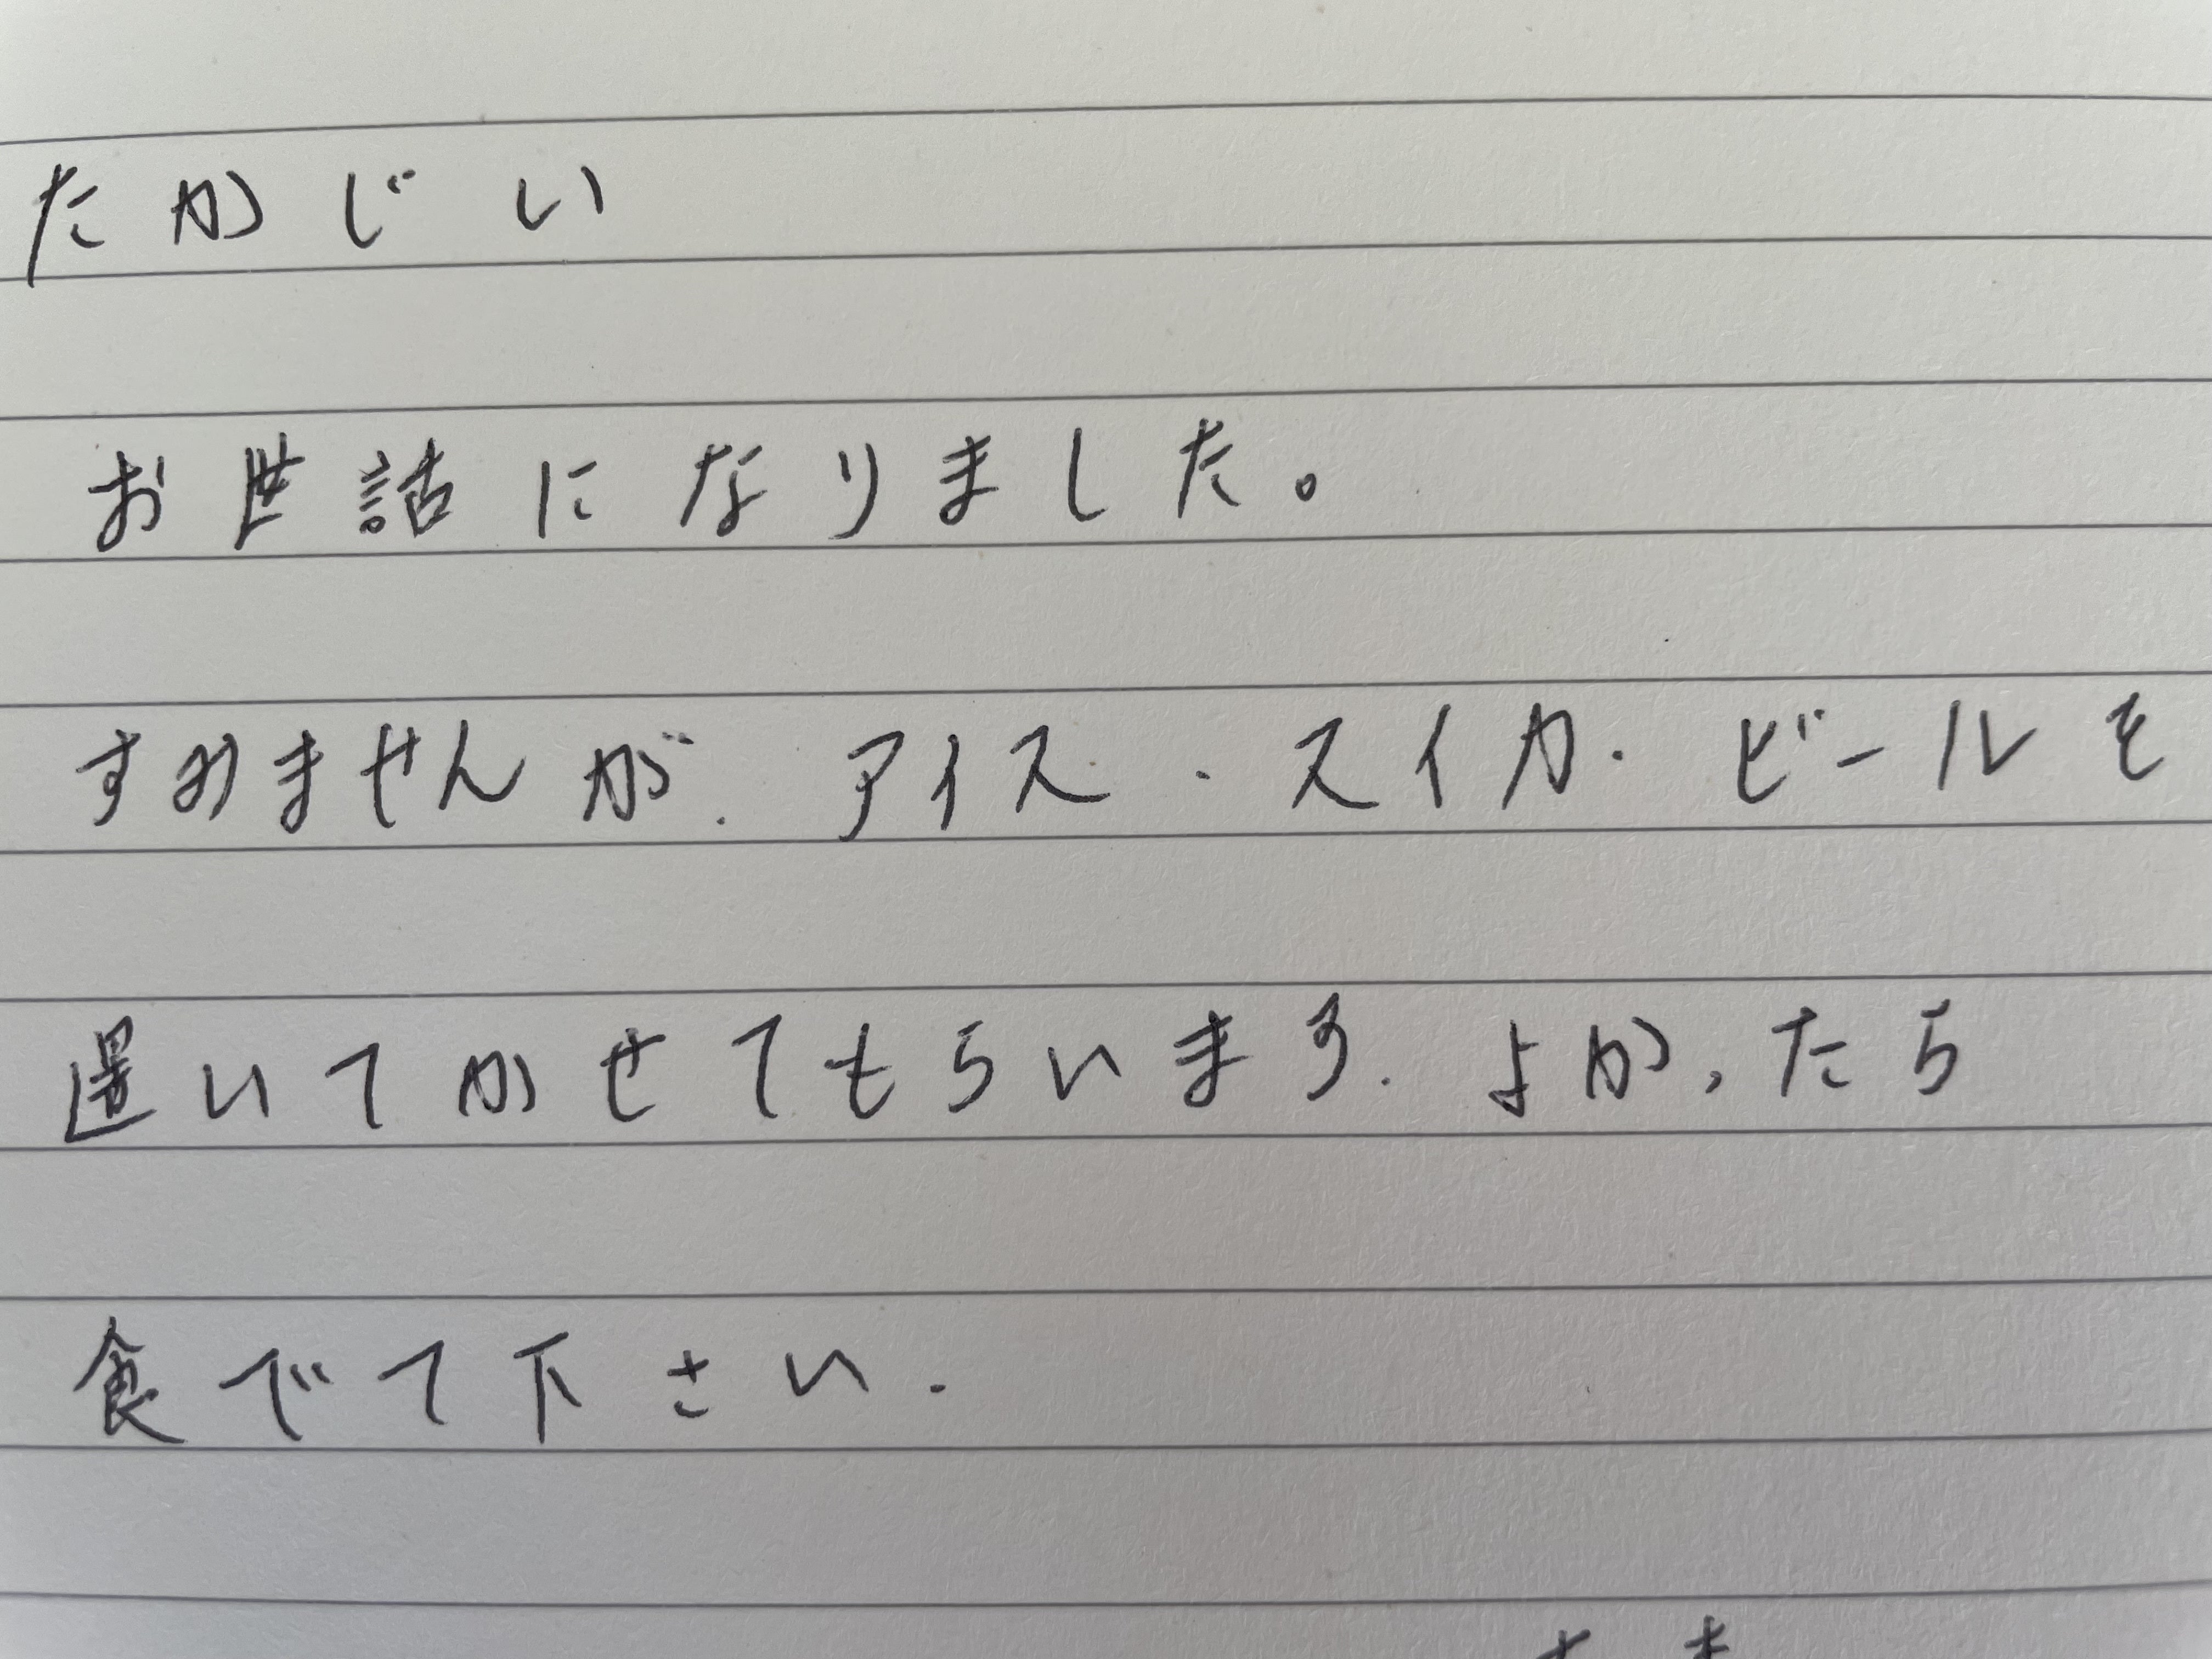 たかじい
お世話になりました。
すみませんが、アイス・スイカ・ビールを
置いてかせてもらいます。よかったら
食べて下さい。